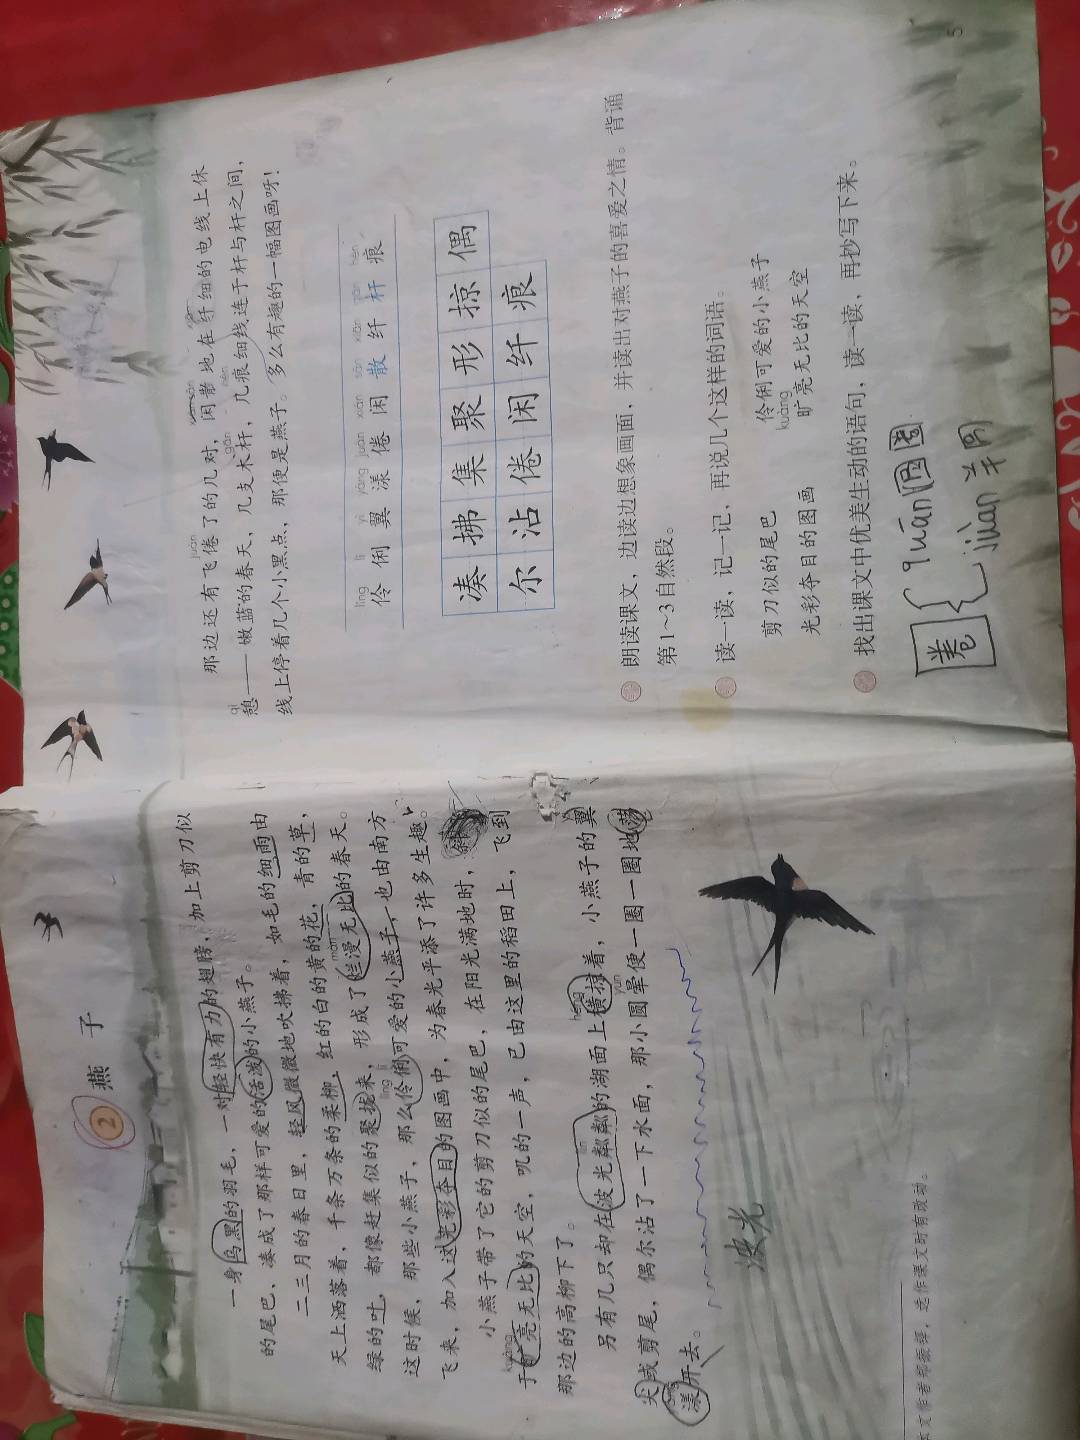 2 燕子
一身乌黑的羽毛，一对轻快有力的翅膀，加上剪刀似
的尾巴，凑成了那样可爱的活泼的小燕子。
二三月的春日里，轻风微微地吹拂着，如毛的细雨由
天上洒落着，千条万条的柔柳，红的白的黄的花，青的草，
绿的叶，都像赶集似的聚拢来，形成了烂漫无比的春天。
màn
这时候，那些小燕子，那么伶俐可爱的小燕子，也由南方
líng lì
飞来，加入这光彩夺目的图画中，为春光平添了许多生趣。
小燕子带了它的剪刀似的尾巴，在阳光满地时，
kuàng
于旷亮无比的天空，叽的一声，已由这里的稻田上，飞到
那边的高柳下了。
lín héng
另有几只却在波光粼粼的湖面上横掠着，小燕子的翼
yùn
尖或剪尾，偶尔沾了一下水面，那小圆晕便一圈一圈地荡
漾开去。
波光
本文作者郑振铎，选作课文时有改动。
juàn sǎn xiān
那边还有飞倦了的几对，闲散地在纤细的电线上休
qì gān hén
憩——嫩蓝的春天，几支木杆，几痕细线连于杆与杆之间，
线上停着几个小黑点，那便是燕子。多么有趣的一幅图画呀！
líng lì yì yàng juàn xián sǎn xiān gān hén
伶 俐 翼 漾 倦 闲 散 纤 杆 痕
凑 拂 集 聚 形 掠 偶
尔 沾 倦 闲 纤 痕
朗读课文，边读边想象画面，并读出对燕子的喜爱之情。背诵
第1～3自然段。
读一读，记一记，再说几个这样的词语。
剪刀似的尾巴 伶俐可爱的小燕子
kuàng
光彩夺目的图画 旷亮无比的天空
找出课文中优美生动的语句，读一读，再抄写下来。
quān
juàn
5